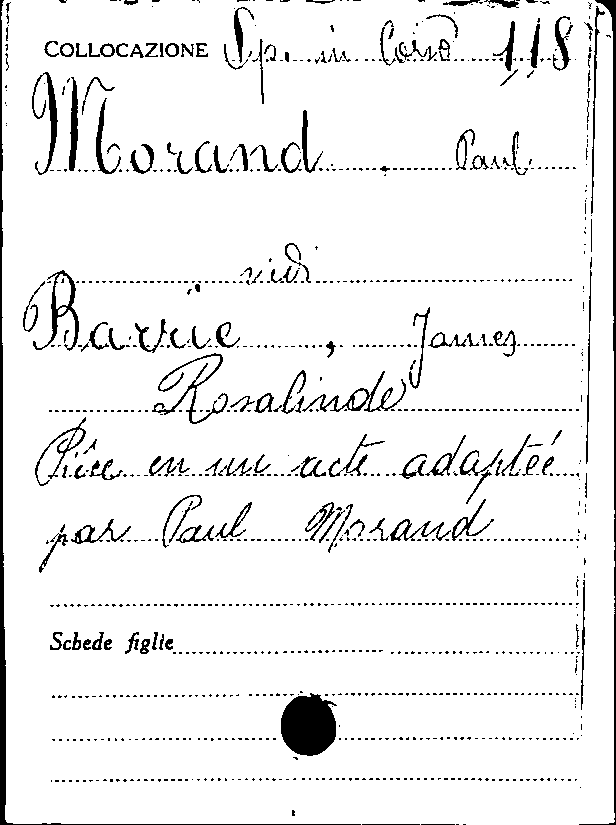 COLLOCAZIONE Sp. in Corso 118
Morand . Paul
vidi
Barrie , James
Rosalinde
Pièce en un acte adaptée
par Paul Morand
Schede figlie